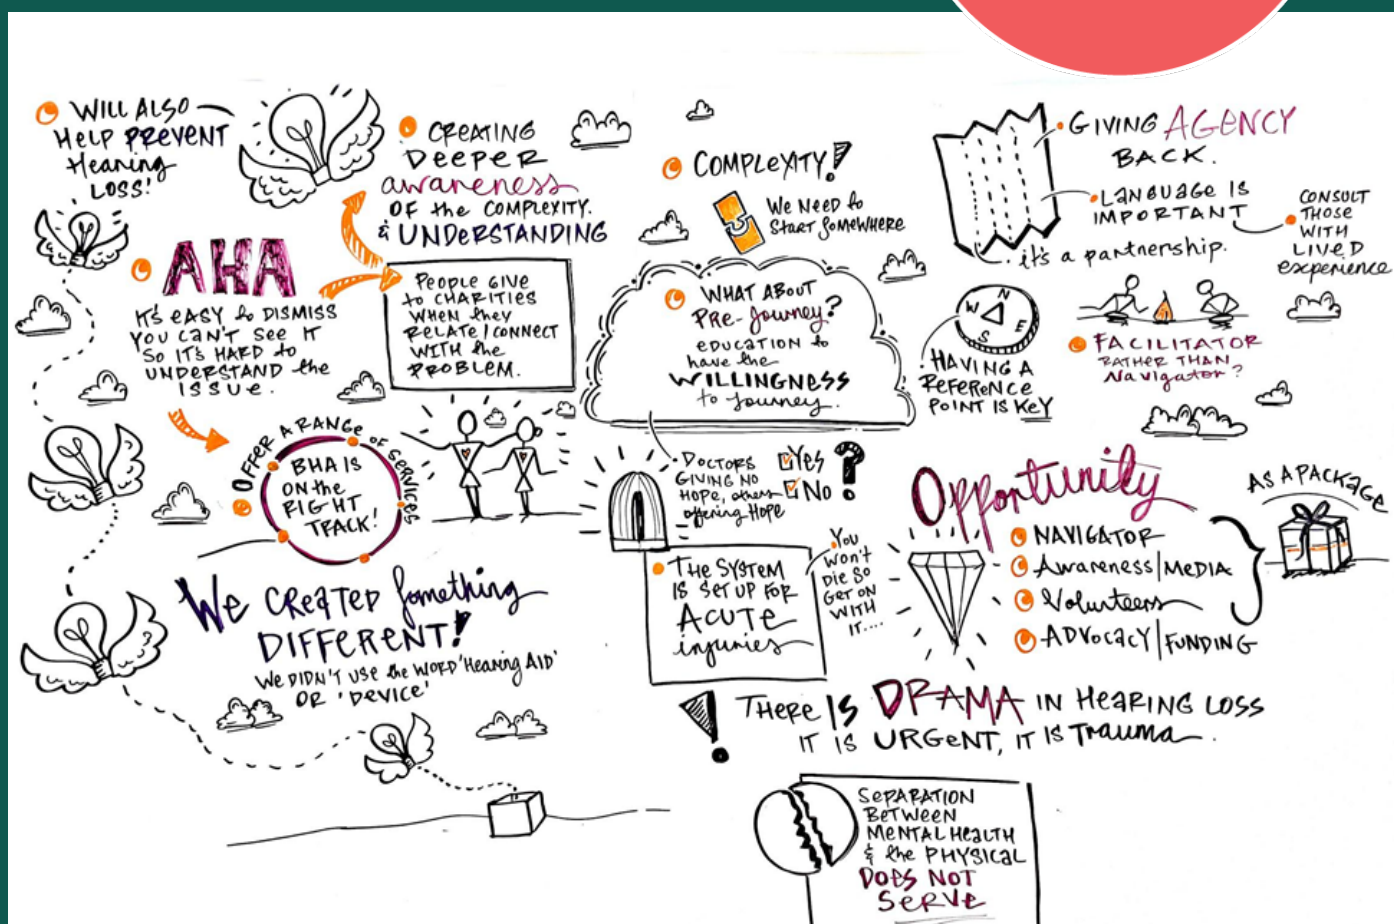 WILL ALSO
HELP PREVENT
Hearing
LOSS!
CREATING
DEEPER
awareness
OF the COMPLEXITY.
& UNDERSTANDING
AHA
IT'S EASY to DISMISS
YOU CAN'T SEE IT
SO IT'S HARD to
UNDERSTAND the
ISSUE.
PEOPLE GIVE
to CHARITIES
WHEN they
RELATE/CONNECT
WITH the
PROBLEM.
OFFER A RANGE OF SERVICES
BHA IS
ON the
RIGHT
TRACK!
WE CREATED Something
DIFFERENT!
WE DIDN'T USE the WORD 'Hearing AID'
OR 'DEVICE'
COMPLEXITY!
We NEED to
START SOMEWHERE
WHAT ABOUT
PRE-Journey?
EDUCATION to
have the
WILLINGNESS
to Journey.
DOCTORS
GIVING NO
HOPE, others
offering HOPE
Yes
No
?
THE SYSTEM
IS SET UP FOR
ACUTE
injuries
You
WON'T
DIE SO
GET ON
WITH
IT....
GIVING AGENCY
BACK.
LANGUAGE IS
IMPORTANT
CONSULT
THOSE
WITH
LIVED
experience
it's a partnership.
N
W
E
S
HAVING A
REFERENCE
POINT IS KEY
FACILITATOR
RATHER THAN
Navigator?
Opportunity
NAVIGATOR
Awareness/MEDIA
Volunteers
ADVOCACY/FUNDING
AS A PACKAGE
! THERE IS DRAMA IN HEARING LOSS
IT IS URGENT, IT IS Trauma.
SEPARATION
BETWEEN
MENTAL HEALTH
& the PHYSICAL
DOES NOT
SERVE